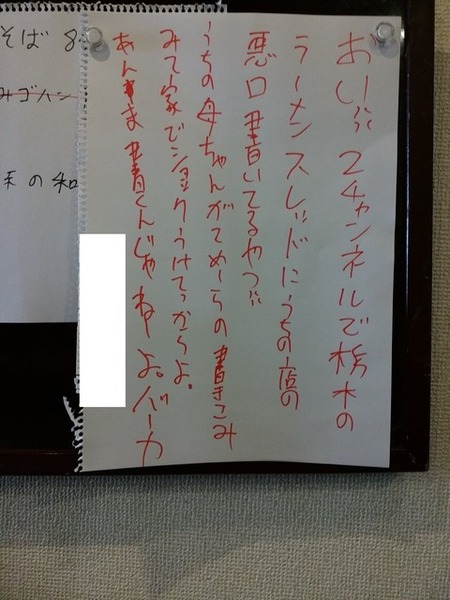 おい!! 2チャンネルで栃木の
ラーメンスレッドにうちの店の
悪口書いてるやつ!!
うちの母ちゃんがてめーらの書きこみ
みて家でショックうけてっからよ。
あんま書くんじゃねーよ。バーカ
そば 8
ゴハン
の和